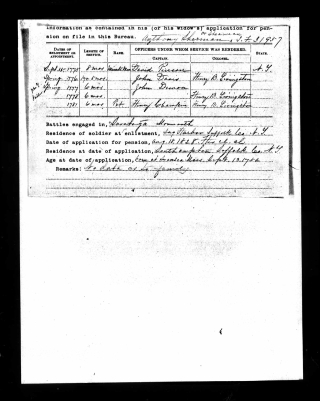 Information as contained in his (or his widow's) application for pen-
sion on file in this Bureau. Anthony Sherman S.F. 31957
DATES OF ENLISTMENT OR APPOINTMENT. LENGTH OF SERVICE. RANK. OFFICERS UNDER WHOM SERVICE WAS RENDERED. STATE.
CAPTAIN. COLONEL.
Sept 1775 8 mos. David Pierson N.Y.
Spring 1776 mos John Davis Henry B. Livingston
Spring 1777 6 mos. John
1778 6 mos. Henry B. Livingston
1781 6 mos. Pvt. Henry Champion Henry B. Livingston
Battles engaged in, Saratoga Monmouth
Residence of soldier at enlistment, Sag Harbor Suffolk Co. N.Y.
Date of application for pension, Aug. 11, 1828.
Residence at date of application, Southampton Suffolk Co. N.Y.
Age at date of application, Born at Mass. Sept. 13, 1756
Remarks: No data as to family